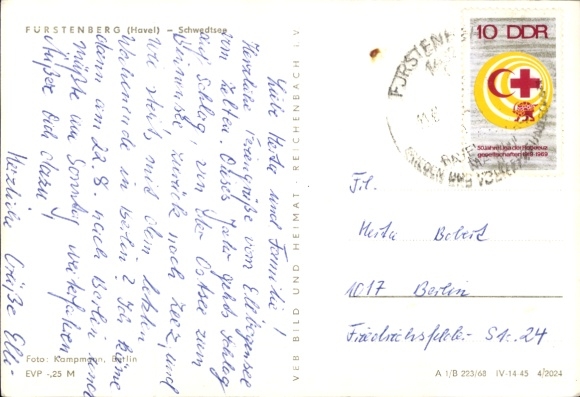 FÜRSTENBERG (Havel) — Schwedtsee
Liebe Herta und Familie!
Herzliche Feriengrüße vom Ellbogensee
vom Zelten. Dieses Jahr gehts Schlag
auf Schlag, von der Ostsee zum
zurück nach Zeez, und
Wie stehts mit dem letzten
Wochenende in Berlin? Ich käme
dann am 22. 8. nach Berlin und
müßte am Sonntag weiterfahren.
Äußere Dich dazu!
Herzliche Grüße Elli-
Foto: Kampmann, Berlin
EVP -,25 M
VEB BILD UND HEIMAT REICHENBACH i. V
10 DDR
50 Jahre Liga der Rotkreuz-
gesellschaften 1919 1969
FÜRSTENB
Frl.
Herta Bobert
1017 Berlin
Friedrichsfelder-Str. 24
A 1/B 223/68 IV-14-45 4/2024